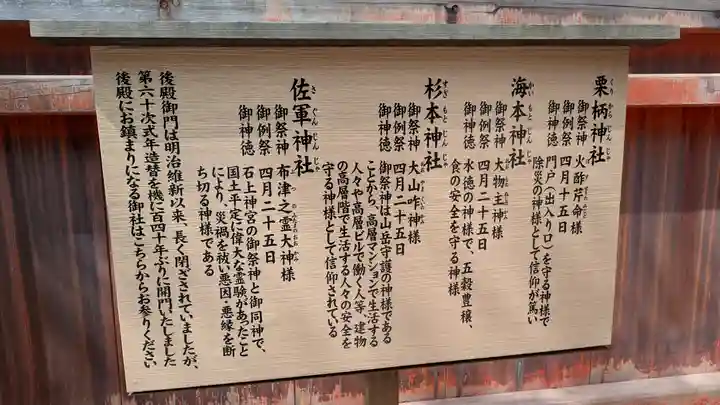 栗柄神社
くりからじんじゃ
御祭神 火酢芹命様
御例祭 四月十五日
御神徳 門戸(出入り口)を守る神様で
除災の神様として信仰が篤い
海本神社
かいもとじんじゃ
御祭神 大物主神様
御例祭 四月二十五日
御神徳 水徳の神様で、五穀豊穣、
食の安全を守る神様
杉本神社
すぎもとじんじゃ
御祭神 大山咋神様
御例祭 四月二十五日
御神徳 御祭神は山岳守護の神様である
ことから、高層マンションで生活する
人々や高層ビルで働く人等、建物
の高層階で生活する人々の安全を
守る神様として信仰されている
佐軍神社
さぐんじんじゃ
御祭神 布津之霊大神様
御例祭 四月二十五日
御神徳 石上神宮の御祭神と御同神で、
国土平定に偉大な霊験があったこと
により、災禍を祓い悪因・悪縁を断
ち切る神様である
後殿御門は明治維新以来、長く閉ざされていましたが、
第六十次式年造替を機に百四十年ぶりに開門いたしました
後殿にお鎮まりになる御社はこちらからお参りください